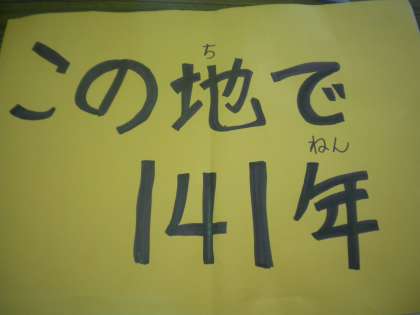 この地で
ち
141年
ねん